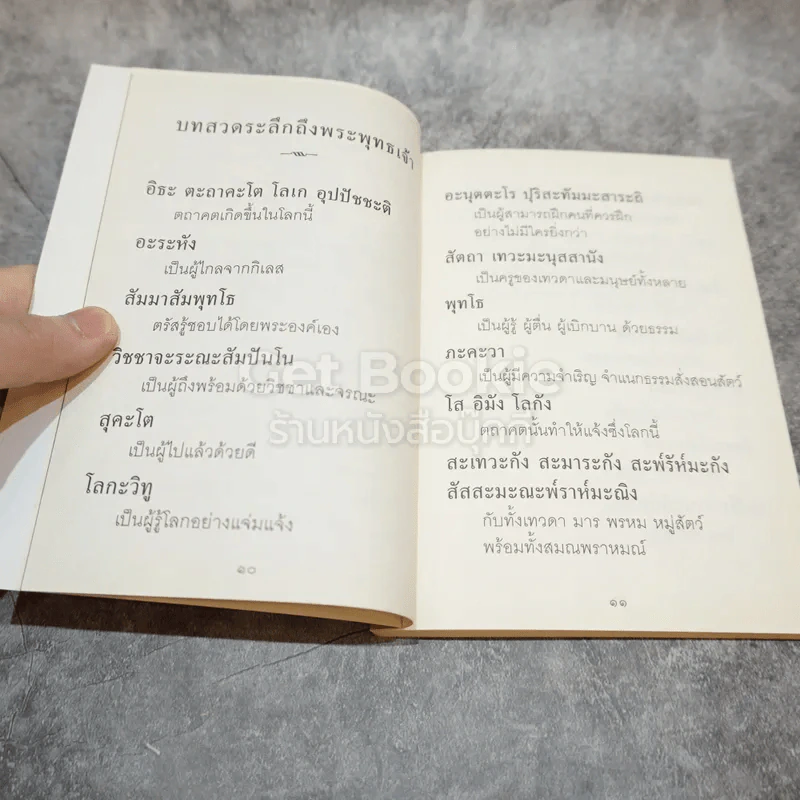 บทสวดระลึกถึงพระพุทธเจ้า
อิธะ ตะถาคะโต โลเก อุปปัชชะติ
ตถาคตเกิดขึ้นในโลกนี้
อะระหัง
เป็นผู้ไกลจากกิเลส
สัมมาสัมพุทโธ
ตรัสรู้ชอบได้โดยพระองค์เอง
วิชชาจะระณะสัมปันโน
เป็นผู้ถึงพร้อมด้วยวิชชาและจรณะ
สุคะโต
เป็นผู้ไปแล้วด้วยดี
โลกะวิทู
เป็นผู้รู้โลกอย่างแจ่มแจ้ง
๑๐
อะนุตตะโร ปุริสะทัมมะสาระถิ
เป็นผู้สามารถฝึกคนที่ควรฝึก
อย่างไม่มีใครยิ่งกว่า
สัตถา เทวะมะนุสสานัง
เป็นครูของเทวดาและมนุษย์ทั้งหลาย
พุทโธ
เป็นผู้รู้ ผู้ตื่น ผู้เบิกบาน ด้วยธรรม
ภะคะวา
เป็นผู้มีความจำเริญ จำแนกธรรมสั่งสอนสัตว์
โส อิมัง โลกัง
ตถาคตนั้นทำให้แจ้งซึ่งโลกนี้
สะเทวะกัง สะมาระกัง สะพ์รัห์มะกัง
สัสสะมะณะพ์ราห์มะณิง
กับทั้งเทวดา มาร พรหม หมู่สัตว์
พร้อมทั้งสมณพราหมณ์
๑๑
Get Bookie
ร้านหนังสือบุ๊คกี้